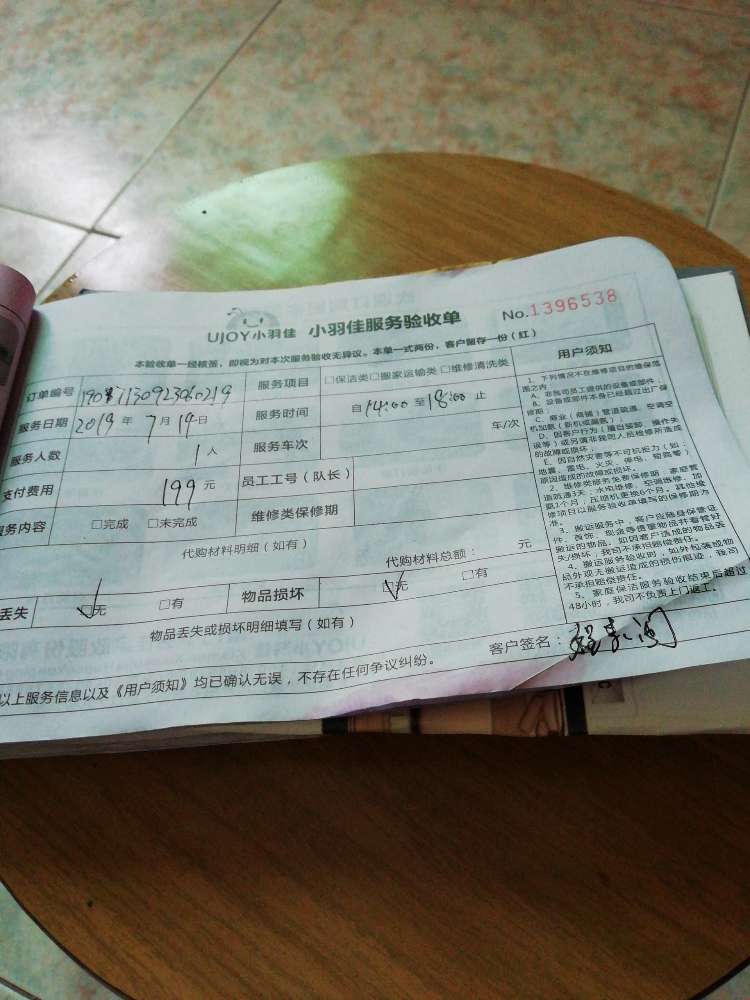 UJOY小羽佳 小羽佳服务验收单 No.1396538
本验收单一经核签，即视为对本次服务验收无异议。本单一式两份，客户留存一份（红）
订单编号 服务项目 □保洁类□搬家运输类□维修清洗类
服务日期 2019年7月14日 服务时间 自14:00至18:00止
服务人数 1人 服务车次 车/次
支付费用 199元 员工工号（队长）
服务内容 □完成 □未完成 维修类保修期
代购材料明细（如有） 代购材料总额： 元
丢失 □无 □有 物品损坏 □无 □有
物品丢失或损坏明细填写（如有）
以上服务信息以及《用户须知》均已确认无误，不存在任何争议纠纷。 客户签名：
用户须知
1、下列情况不在维修项目的维保范
围之内
A、非我司员工提供的设备或部件
B、设备或部件本身已经超过出厂保
修期
C、商业（商铺）管道疏通，空调空
机加氨（新机或漏氨）
D、因客户行为（擅自装卸、操作失
误等）或另请非我司人员检修所造成
的故障或损坏，
E、因自然灾害等不可机拒力（如：
地震、雷电、火灾、停电、短路等）
原因造成的故障或损坏。
2、维修类服务免费保修期，家庭管
道疏通3天，水电维修、空调维修、加
氨2个月，压缩机更换6个月。其他维
修项目以服务验收单填写的保修期为
准。
3、搬运服务中，客户应随身保管证
件、首饰、现金等贵重物品并看管好
搬运的物品，如因客户造成的物品丢
失/损坏，我司不承担赔偿责任。
4、搬运服务验收则，如外包装或物
品外观无搬运造成的损伤痕迹，我司
不承担赔偿责任。
5、家庭保洁服务验收结束后超过
48小时，我司不负责上门返工。